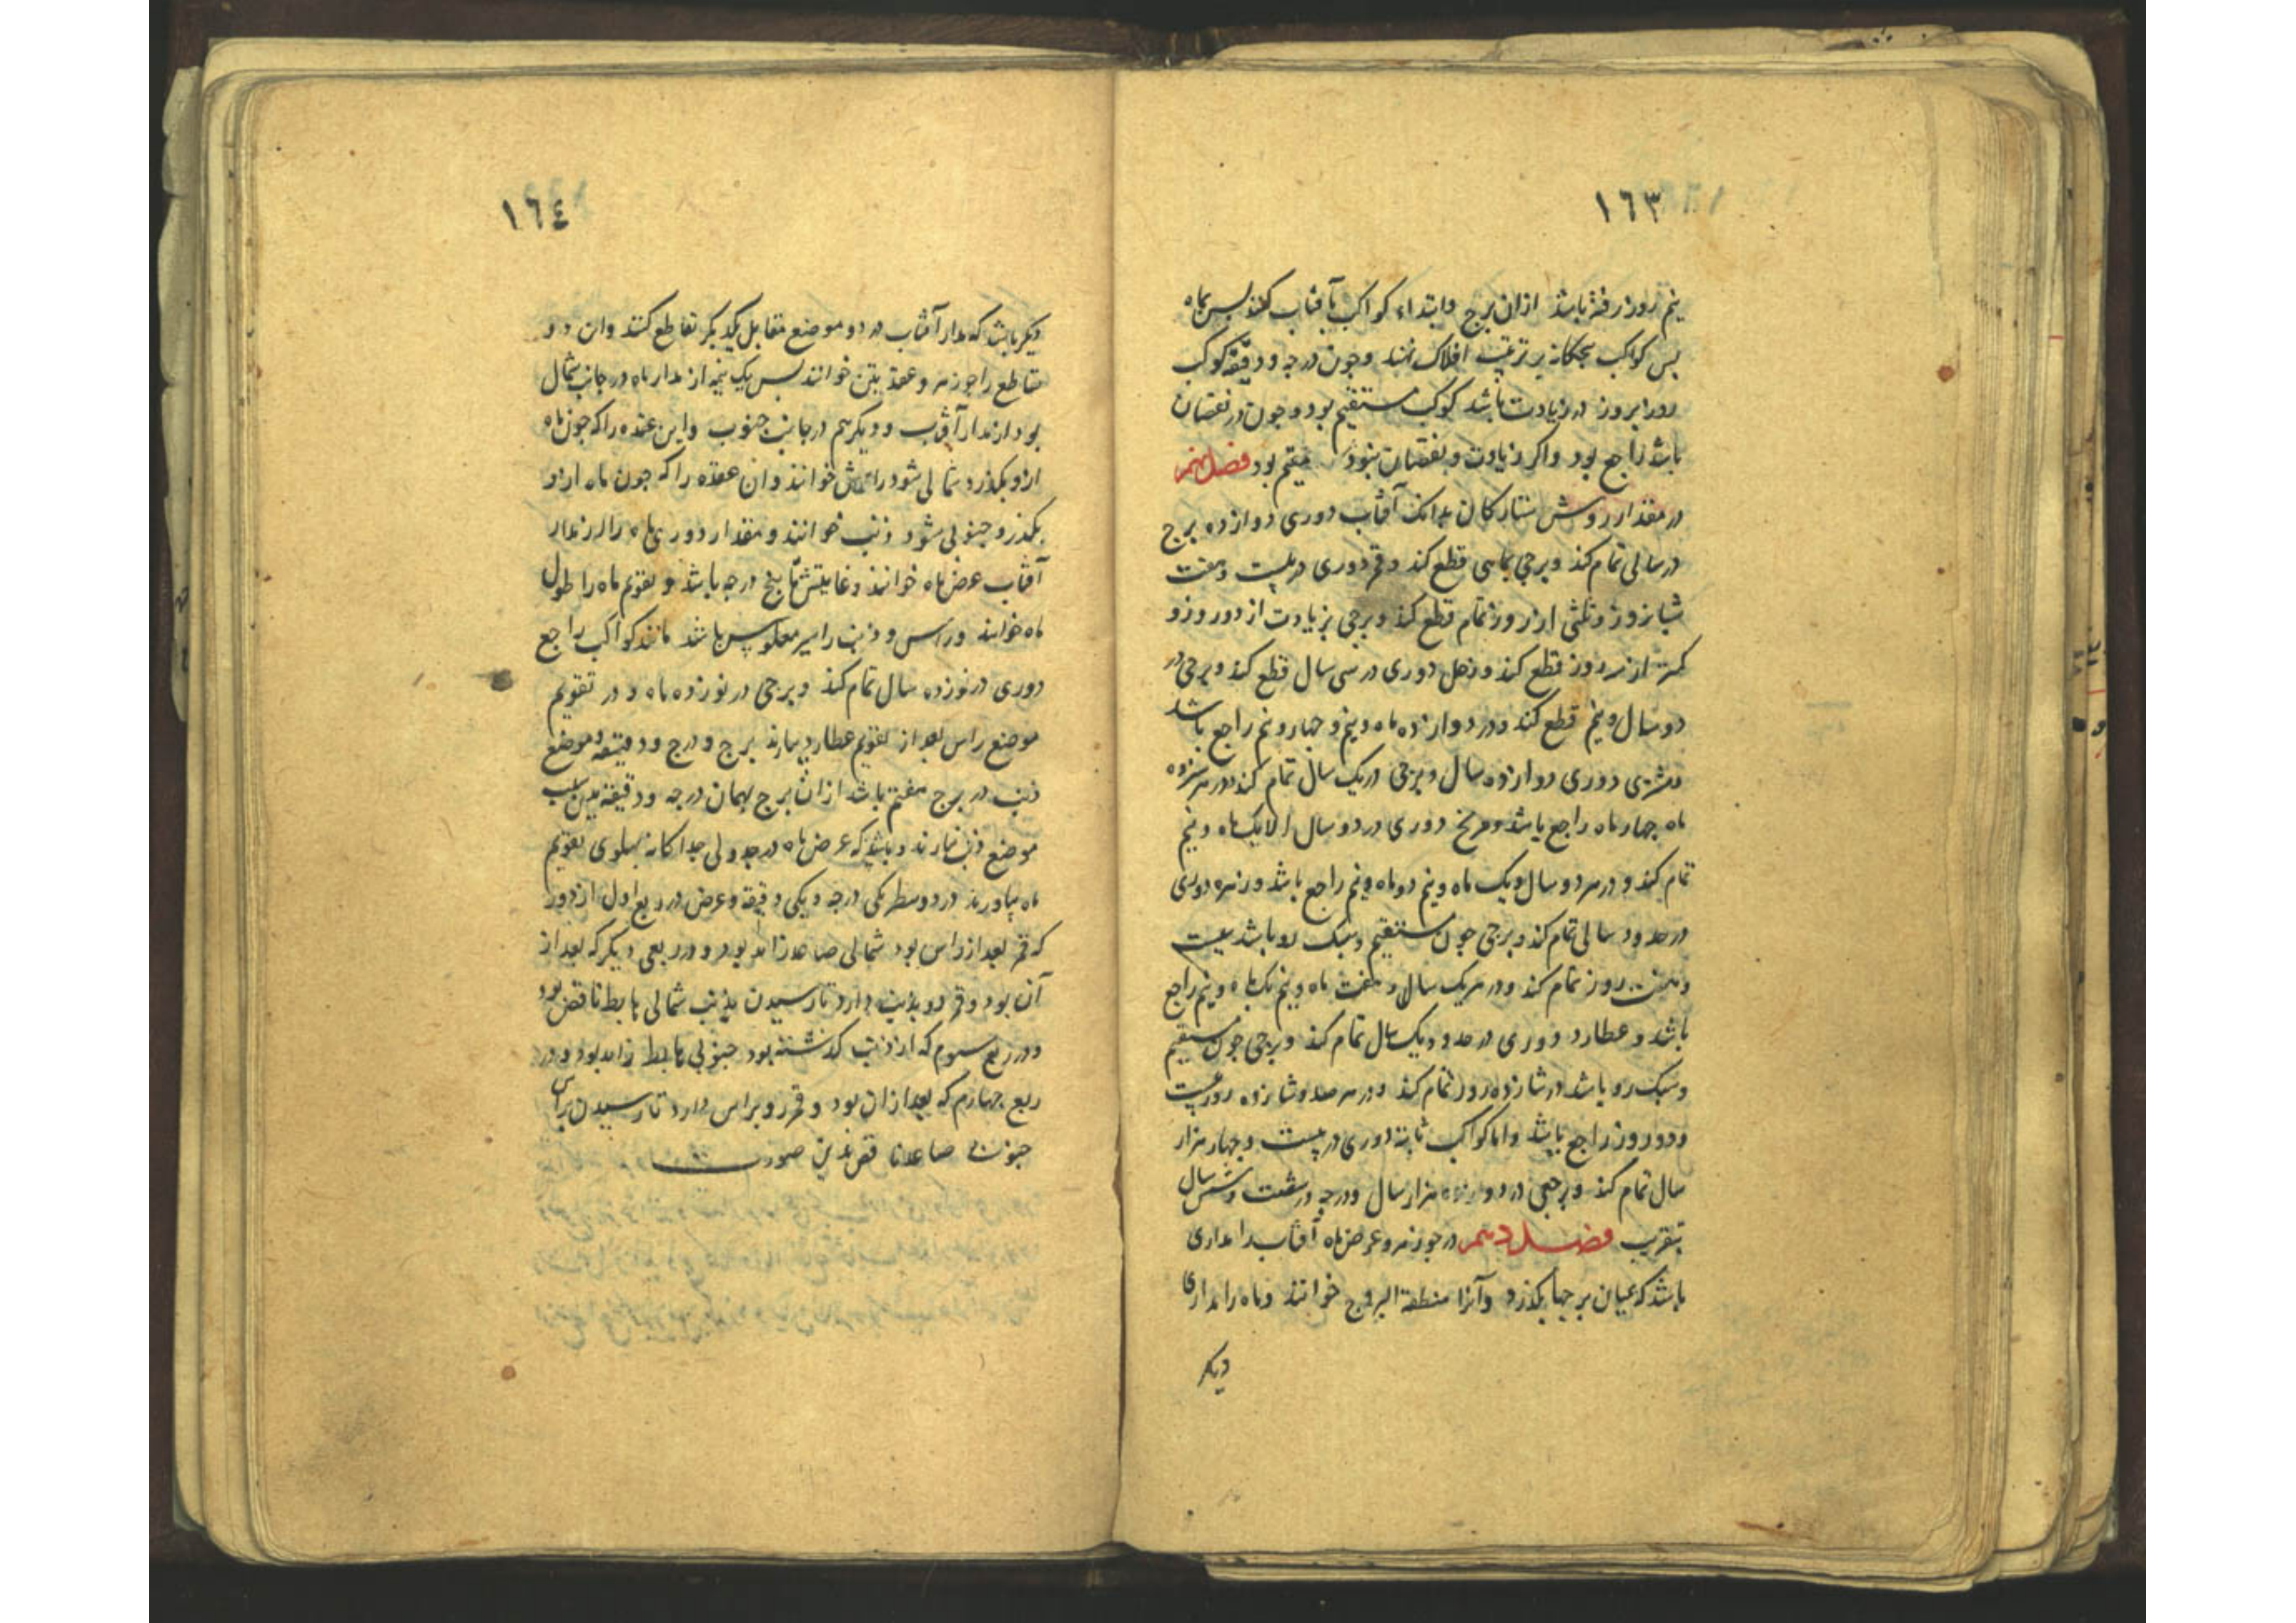 ١٦٣
نیم روز رفته باشد ازان برج و ابتداء کواکب بآفتاب کنند پس بماه
پس کواکب پنجکانه بر ترتیب افلاک نهند و چون درجه و دقیقه کوکب
روز بروز در زیادت باشد کوکب مستقیم بود و چون در نقصان
باشد راجع بود و اکر زیادت و نقصان نبود مقیم بود فصل نهم
در مقدار روش ستارکان بدانک آفتاب دوری دوازده برج
در سالی تمام کند و برجی بماهی قطع کند و قمر دوری در بیست و هفت
شبانروز و ثلثی از روز تمام قطع کند و برجی بزیادت از دو روز و
کمتر از سه روز قطع کند و زحل دوری در سی سال قطع کند و برجی در
دو سال و نیم قطع کند و در دوازده ماه و نیم و چهار و نیم راجع باشد
و مشتری دوری دوازده سال و برجی در یک سال تمام کند و در هر سیزده
ماه چهار ماه راجع باشد و مریخ دوری در دو سال الا یک ماه و نیم
تمام کند و در هر دو سال و یک ماه و نیم دو ماه و نیم راجع باشد و زهره دوری
در حدود سالی تمام کند و برجی چون مستقیم و سبک رو باشد بیست
و هفت روز تمام کند و در هر یک سال و هفت ماه و نیم یک ماه و نیم راجع
باشد و عطارد دوری در حدود یک سال تمام کند و برجی چون مستقیم
و سبک رو باشد در شانزده روز تمام کند و در هر صد و شانزده روز بیست
و دو روز راجع باشد و اما کواکب ثابته دوری در بیست و چهار هزار
سال تمام کند و برجی در دو هزار سال و درجه در شصت و شش سال
بتقریب فصل دهم در جوزهر و عرض ماه آفتاب را مداری
باشد که میان برجها بکذرد و آنرا منطقة البروج خوانند و ماه را مداری
دیکر
١٦٤
دیکر باشد که مدار آفتاب در دو موضع متقابل یکدیکر تقاطع کنند و ان دو
تقاطع را جوزهر و عقدتین خوانند پس یک نیمه از مدار ماه در جانب شمال
بود از مدار آفتاب و دیکر نیم در جانب جنوب و این عقده را که چون ماه
ازو بکذرد شمالی شود راسش خوانند و ان عقده را که چون ماه ازو
بکذرد جنوبی شود ذنب خوانند و مقدار دوری ماه را از مدار
آفتاب عرض ماه خوانند و غایتش تا پنج درجه باشد و تقویم ماه را طول
ماه خوانند و راس و ذنب را سیر معکوس باشد مانند کواکب راجع
دوری در نوزده سال تمام کند و برجی در نوزده ماه و در تقویم
موضع راس بعد از تقویم عطارد بیارند برج و درج و دقیقه و موضع
ذنب در برج هفتم باشد ازان برج بهمان درجه و دقیقه بدین سبب
موضع ذنب نیارند و باشد که عرض ماه در جدولی جداکانه پهلوی تقویم
ماه بیاورند در دو سطر یکی درجه و یکی دقیقه و عرض در ربع اول از دور
که قمر بعد از راس بود شمالی صاعد زاید بود و در ربعی دیکر که بعد از
آن بود و قمر رو بذنب دارد تا رسیدن بذنب شمالی هابط ناقص بود
و در ربع سوم که از ذنب کذشته بود جنوبی هابط زاید بود و در
ربع چهارم که بعد ازان بود و قمر رو براس دارد تا رسیدن براس
جنوبی صاعد ناقص بدین صورت